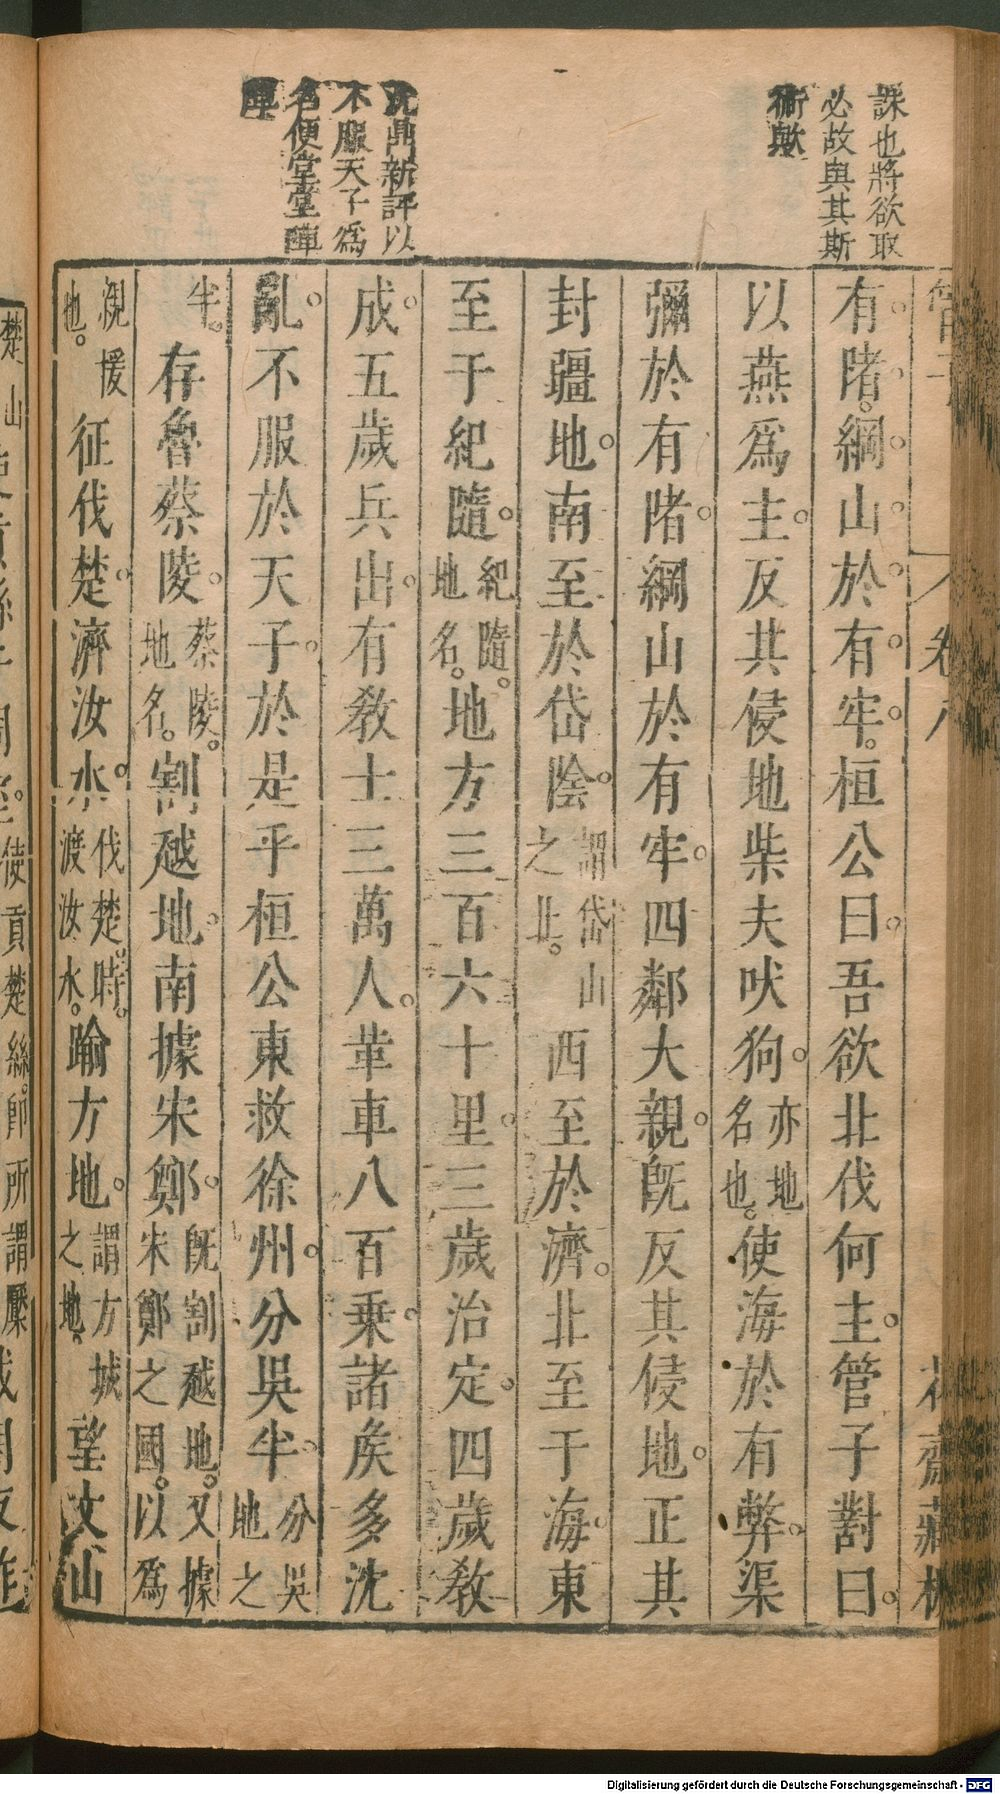 誅也將欲取
必故與其斯
術歟
沈鼎新評以
不服天子爲
名便堂堂陣
卷八
花齋藏板
有陼。綱山於有牢。桓公曰。吾欲北伐何主。管子對曰。
以燕爲主。反其侵地柴夫吠狗。亦地名也。使海於有弊。渠
彌於有陼。綱山於有牢。四鄰大親。旣反其侵地。正其
封疆地。南至於岱陰。謂岱山之北。西至於濟。北至于海。東
至于紀隨。紀隨。地名。地方三百六十里。三歲治定。四歲敎
成。五歲兵出。有敎士三萬人。革車八百乘。諸矦多沈
亂。不服於天子。於是乎桓公東救徐州。分吳半。分吳地之
半。存魯蔡陵。蔡陵。地名。割越地。南據宋鄭。旣割越地。又據宋鄭之國。以爲
親援也。征伐楚。濟汝水。伐楚。時。渡汝水。踰方地。謂方城之地。望汶山
楚山
使貢楚絲。卽所謂檿